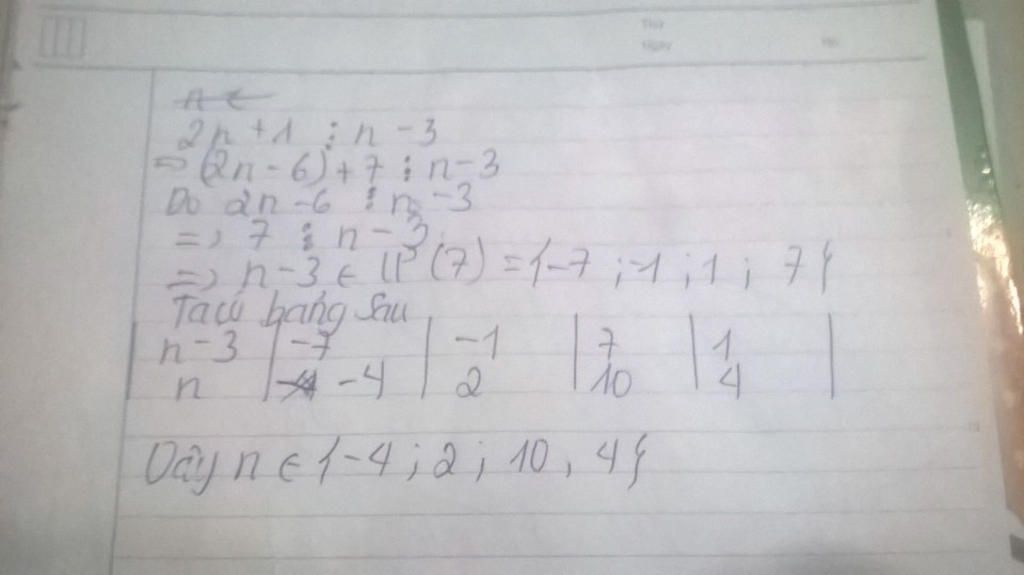 Thứ
Ngày
No.
n ∈
2n + 1 ⋮ n - 3
=> (2n - 6) + 7 ⋮ n - 3
Do 2n - 6 ⋮ n - 3
=> 7 ⋮ n - 3
=> n - 3 ∈ Ư(7) = {-7 ; -1 ; 1 ; 7}
Ta có bảng sau
n - 3 | -7 | -1 | 7 | 1 |
n | -4 | 2 | 10 | 4 |
Vậy n ∈ {-4 ; 2 ; 10 , 4}